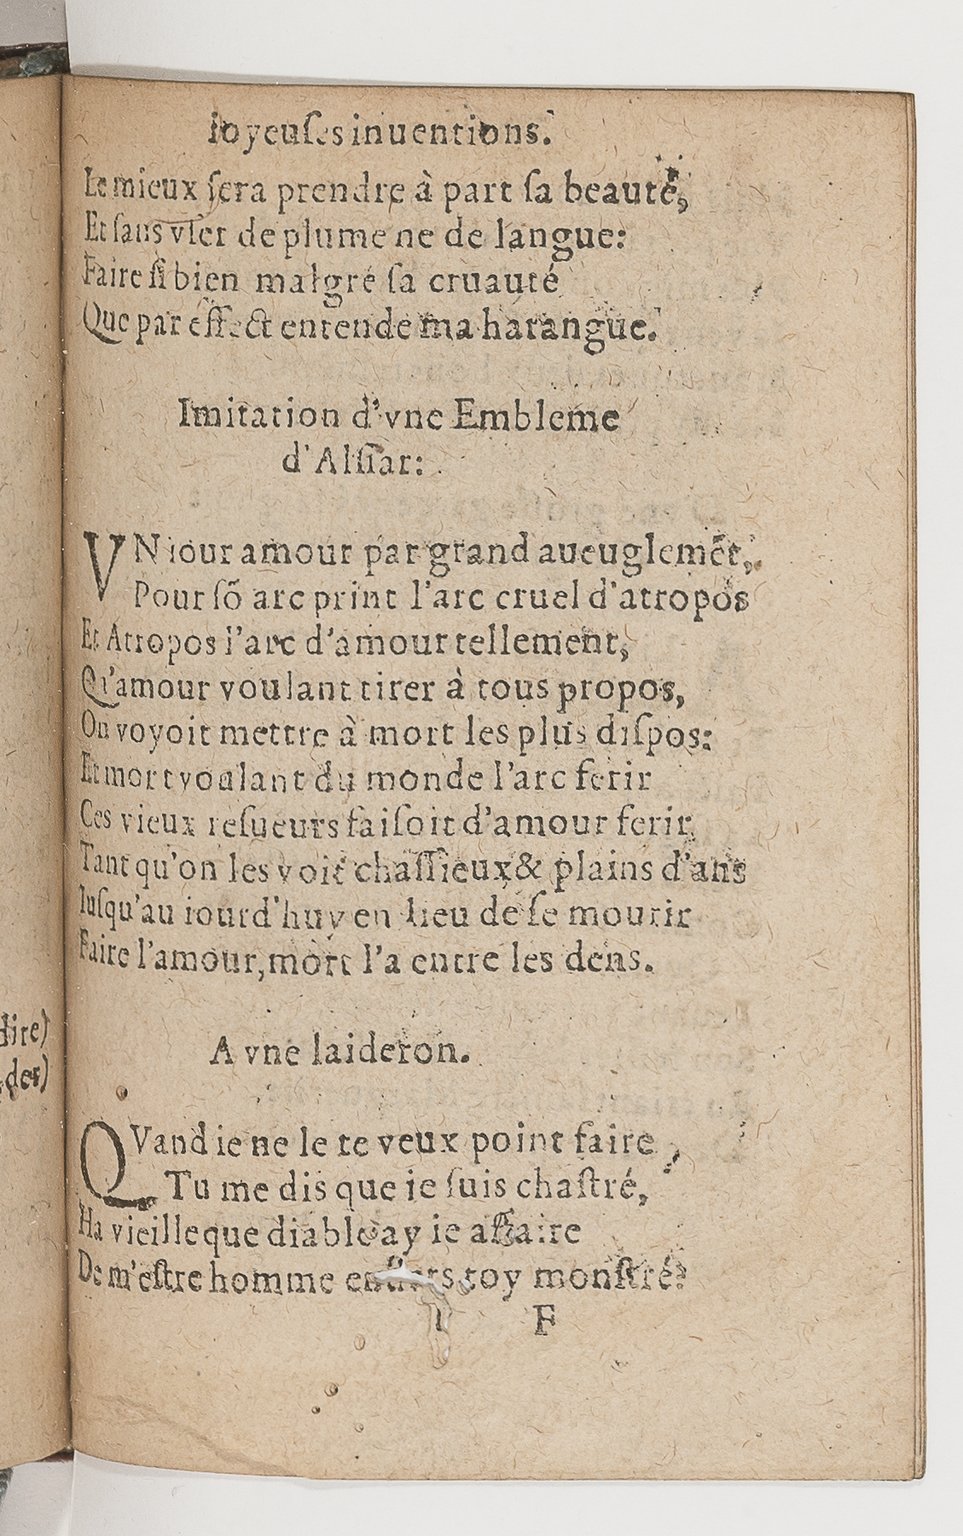 Ioyeuſes inuentions.
Le mieux ſera prendre à part ſa beauté,
Et ſans vſer de plume ne de langue:
Faire ſi bien malgré ſa cruauté
Que par effect entende ma harangue.
Imitation d'vne Embleme
d'Alſiar:
VN iour amour par grand aueuglemẽt,
Pour ſõ arc print l'arc cruel d'atropos
Et Atropos l'arc d'amour tellement,
Qu'amour voulant tirer à tous propos,
On voyoit mettre à mort les plus diſpos:
Et mort voulant du monde l'arc ferir
Ces vieux reſueurs faiſoit d'amour ferir,
Tant qu'on les voit chaſſieux & plains d'ans
Iuſqu'au iourd'huy en lieu de ſe mourir
Faire l'amour, mort l'a entre les dens.
A vne laideron.
QVand ie ne le te veux point faire,
Tu me dis que ie ſuis chaſtré,
Ha vieille que diable ay ie affaire
De m'eſtre homme toy monſtré?
F
dire)
der)